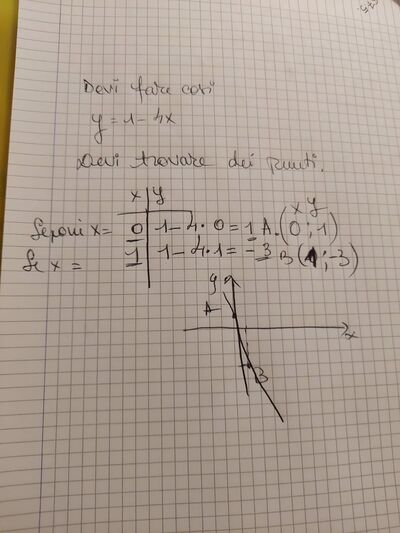 Devi fare così
y = 1 - 4x
Devi trovare dei punti.
x | y
Se poni x = 0 | 1 - 4 · 0 = 1 A (0 ; 1)
x y
Se x = 1 | 1 - 4 · 1 = - 3 B (1 ; -3)
y
A
x
B